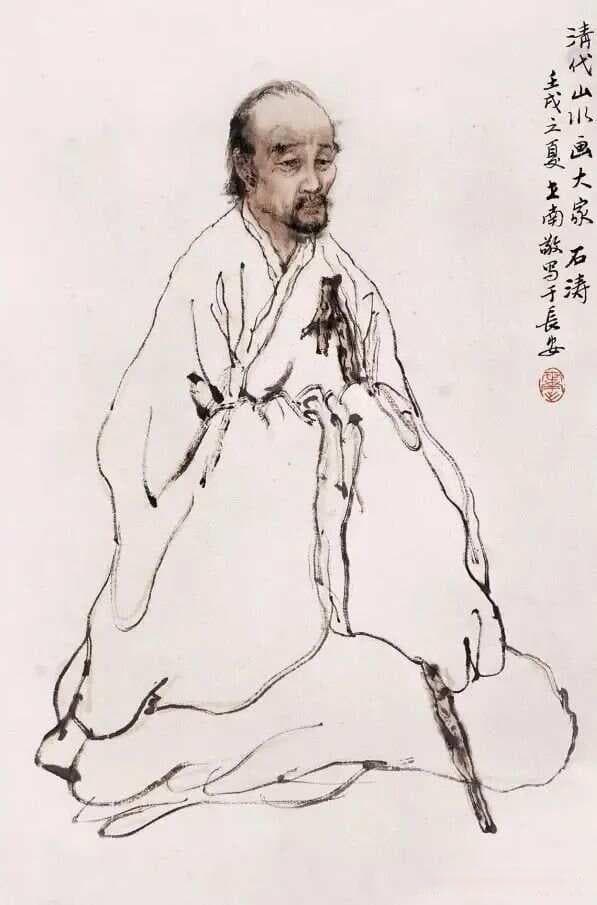 清代山水画大家 石涛
壬戌之夏 南敬写于長安